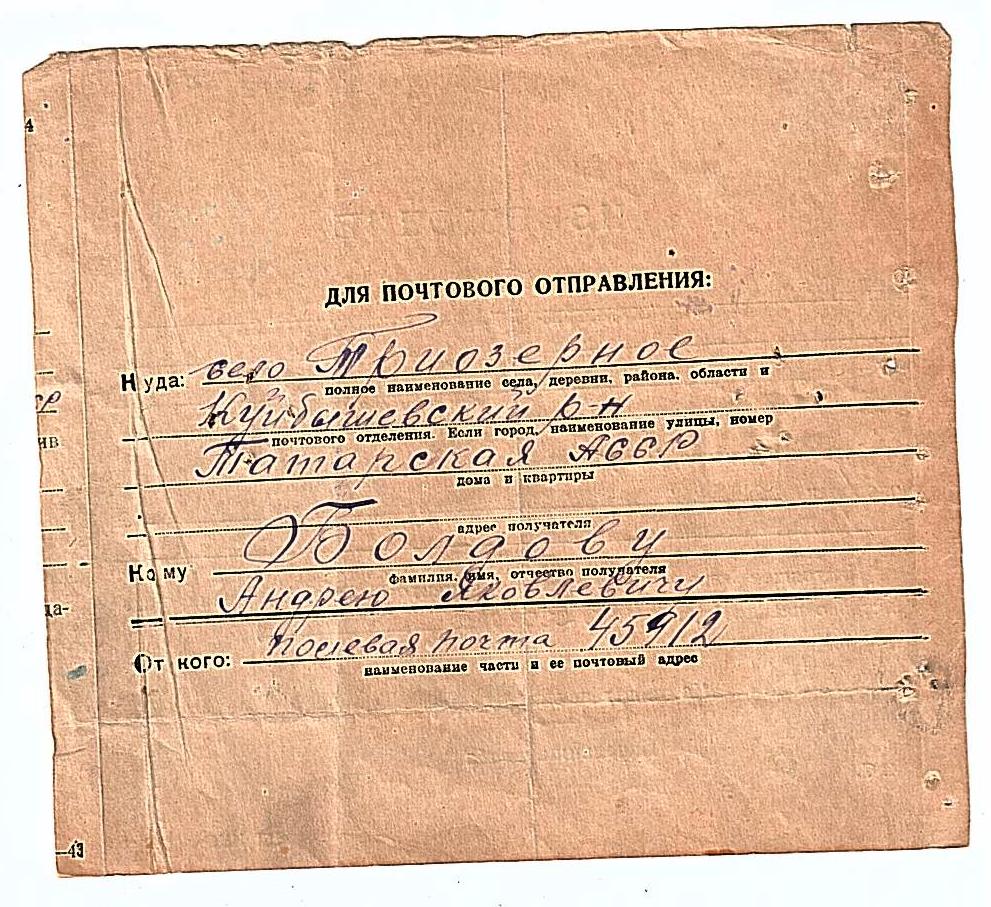 4
ДЛЯ ПОЧТОВОГО ОТПРАВЛЕНИЯ:
Куда: село Триозерное
полное наименование села, деревни, района, области и
Куйбышевский р-н
почтового отделения. Если город, наименование улицы, номер
Татарская АССР
дома и квартиры
адрес получателя
Кому Болдову
фамилия, имя, отчество получателя
Андрею Яковлевичу
От кого: полевая почта 45912
наименование части и ее почтовый адрес
ив
да-
—43